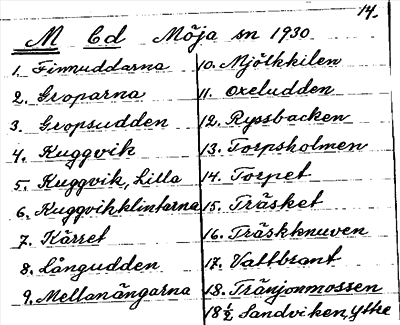 14.
M Cd Möja sn 1930
1. Finnuddarna
2. Groparna
3. Gropsudden
4. Kuggvik
5. Kuggvik, Lilla
6. Kuggvikklintarna
7. Kärret
8. Långudden
9. Mellanängarna
10. Mjölkkilen
11. Oxeludden
12. Ryssbacken
13. Torpsholmen
14. Torpet
15. Träsket
16. Träskknuven
17. Vattbrant
18. Tränjonmossen
18 1/2 Sandviken, Yttre